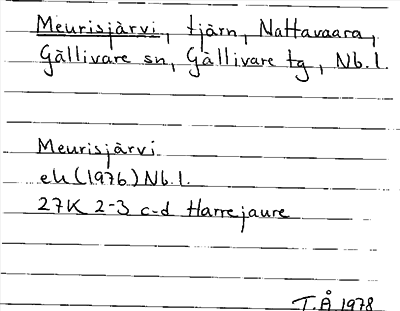 Meurisjärvi, tjärn, Nattavaara,
Gällivare sn, Gällivare tg, Nb.l.
Meurisjärvi
ek (1976) Nb.l.
27K 2-3 c-d Harrejaure
T.Å 1978